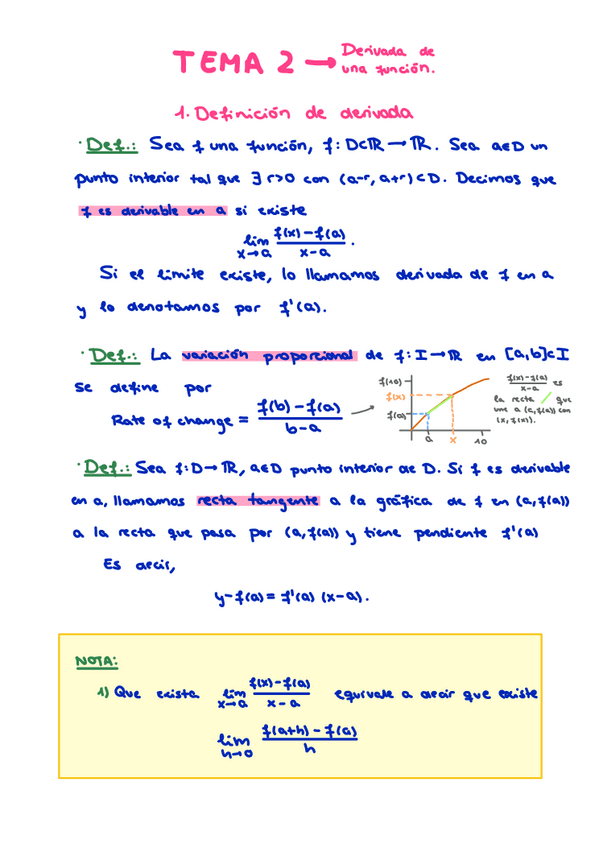 TEMA 2 → Derivada de
una función.
1. Definición de derivada
· Def.: Sea f una función, f: D⊂ℝ → ℝ. Sea a∈D un
punto interior tal que ∃ r>0 con (a-r, a+r)⊂D. Decimos que
f es derivable en a si existe
lim x→a (f(x) - f(a))/(x - a) .
Si el límite existe, lo llamamos derivada de f en a
y lo denotamos por f'(a).
· Def.: La variación proporcional de f: I → ℝ en [a,b]⊂I
se define por
Rate of change = (f(b) - f(a))/(b - a)
f(10)
f(x)
f(a)
a x 10
(f(x) - f(a))/(x - a) es
la recta que
une a (a, f(a)) con
(x, f(x)).
· Def.: Sea f: D → ℝ, a∈D punto interior de D. Si f es derivable
en a, llamamos recta tangente a la gráfica de f en (a, f(a))
a la recta que pasa por (a, f(a)) y tiene pendiente f'(a)
Es decir,
y - f(a) = f'(a) (x - a).
NOTA:
1) Que exista lim x→a (f(x) - f(a))/(x - a) equivale a decir que existe
lim h→0 (f(a+h) - f(a))/h